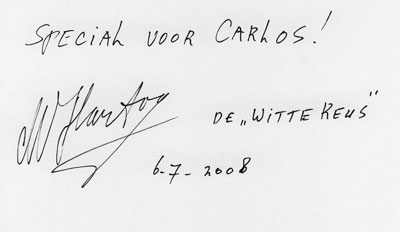 SPECIAL VOOR CARLOS!
W Hartog
DE „WITTE REUS"
6-7-2008